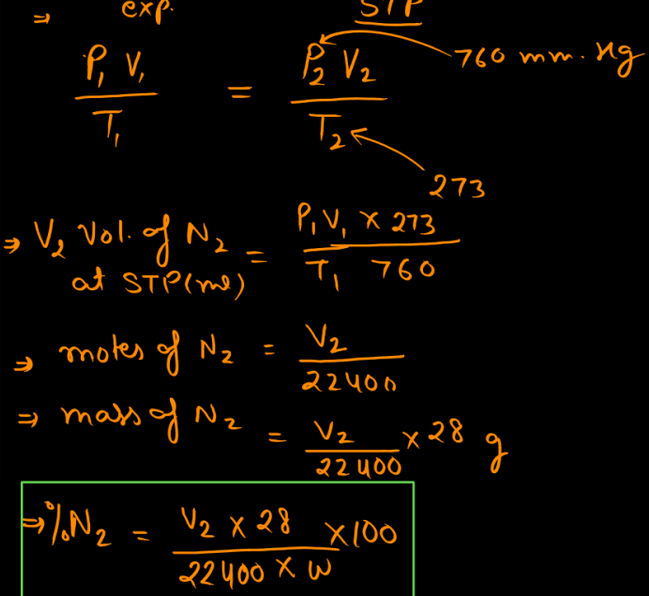 ⇒ exp. STP
P₁ V₁ / T₁ = P₂ V₂ / T₂
760 mm. Hg
273
⇒ V₂ Vol. of N₂ at STP(ml) = P₁ V₁ × 273 / T₁ 760
⇒ moles of N₂ = V₂ / 22400
⇒ mass of N₂ = V₂ / 22400 × 28 g
⇒ % N₂ = V₂ × 28 / 22400 × W × 100